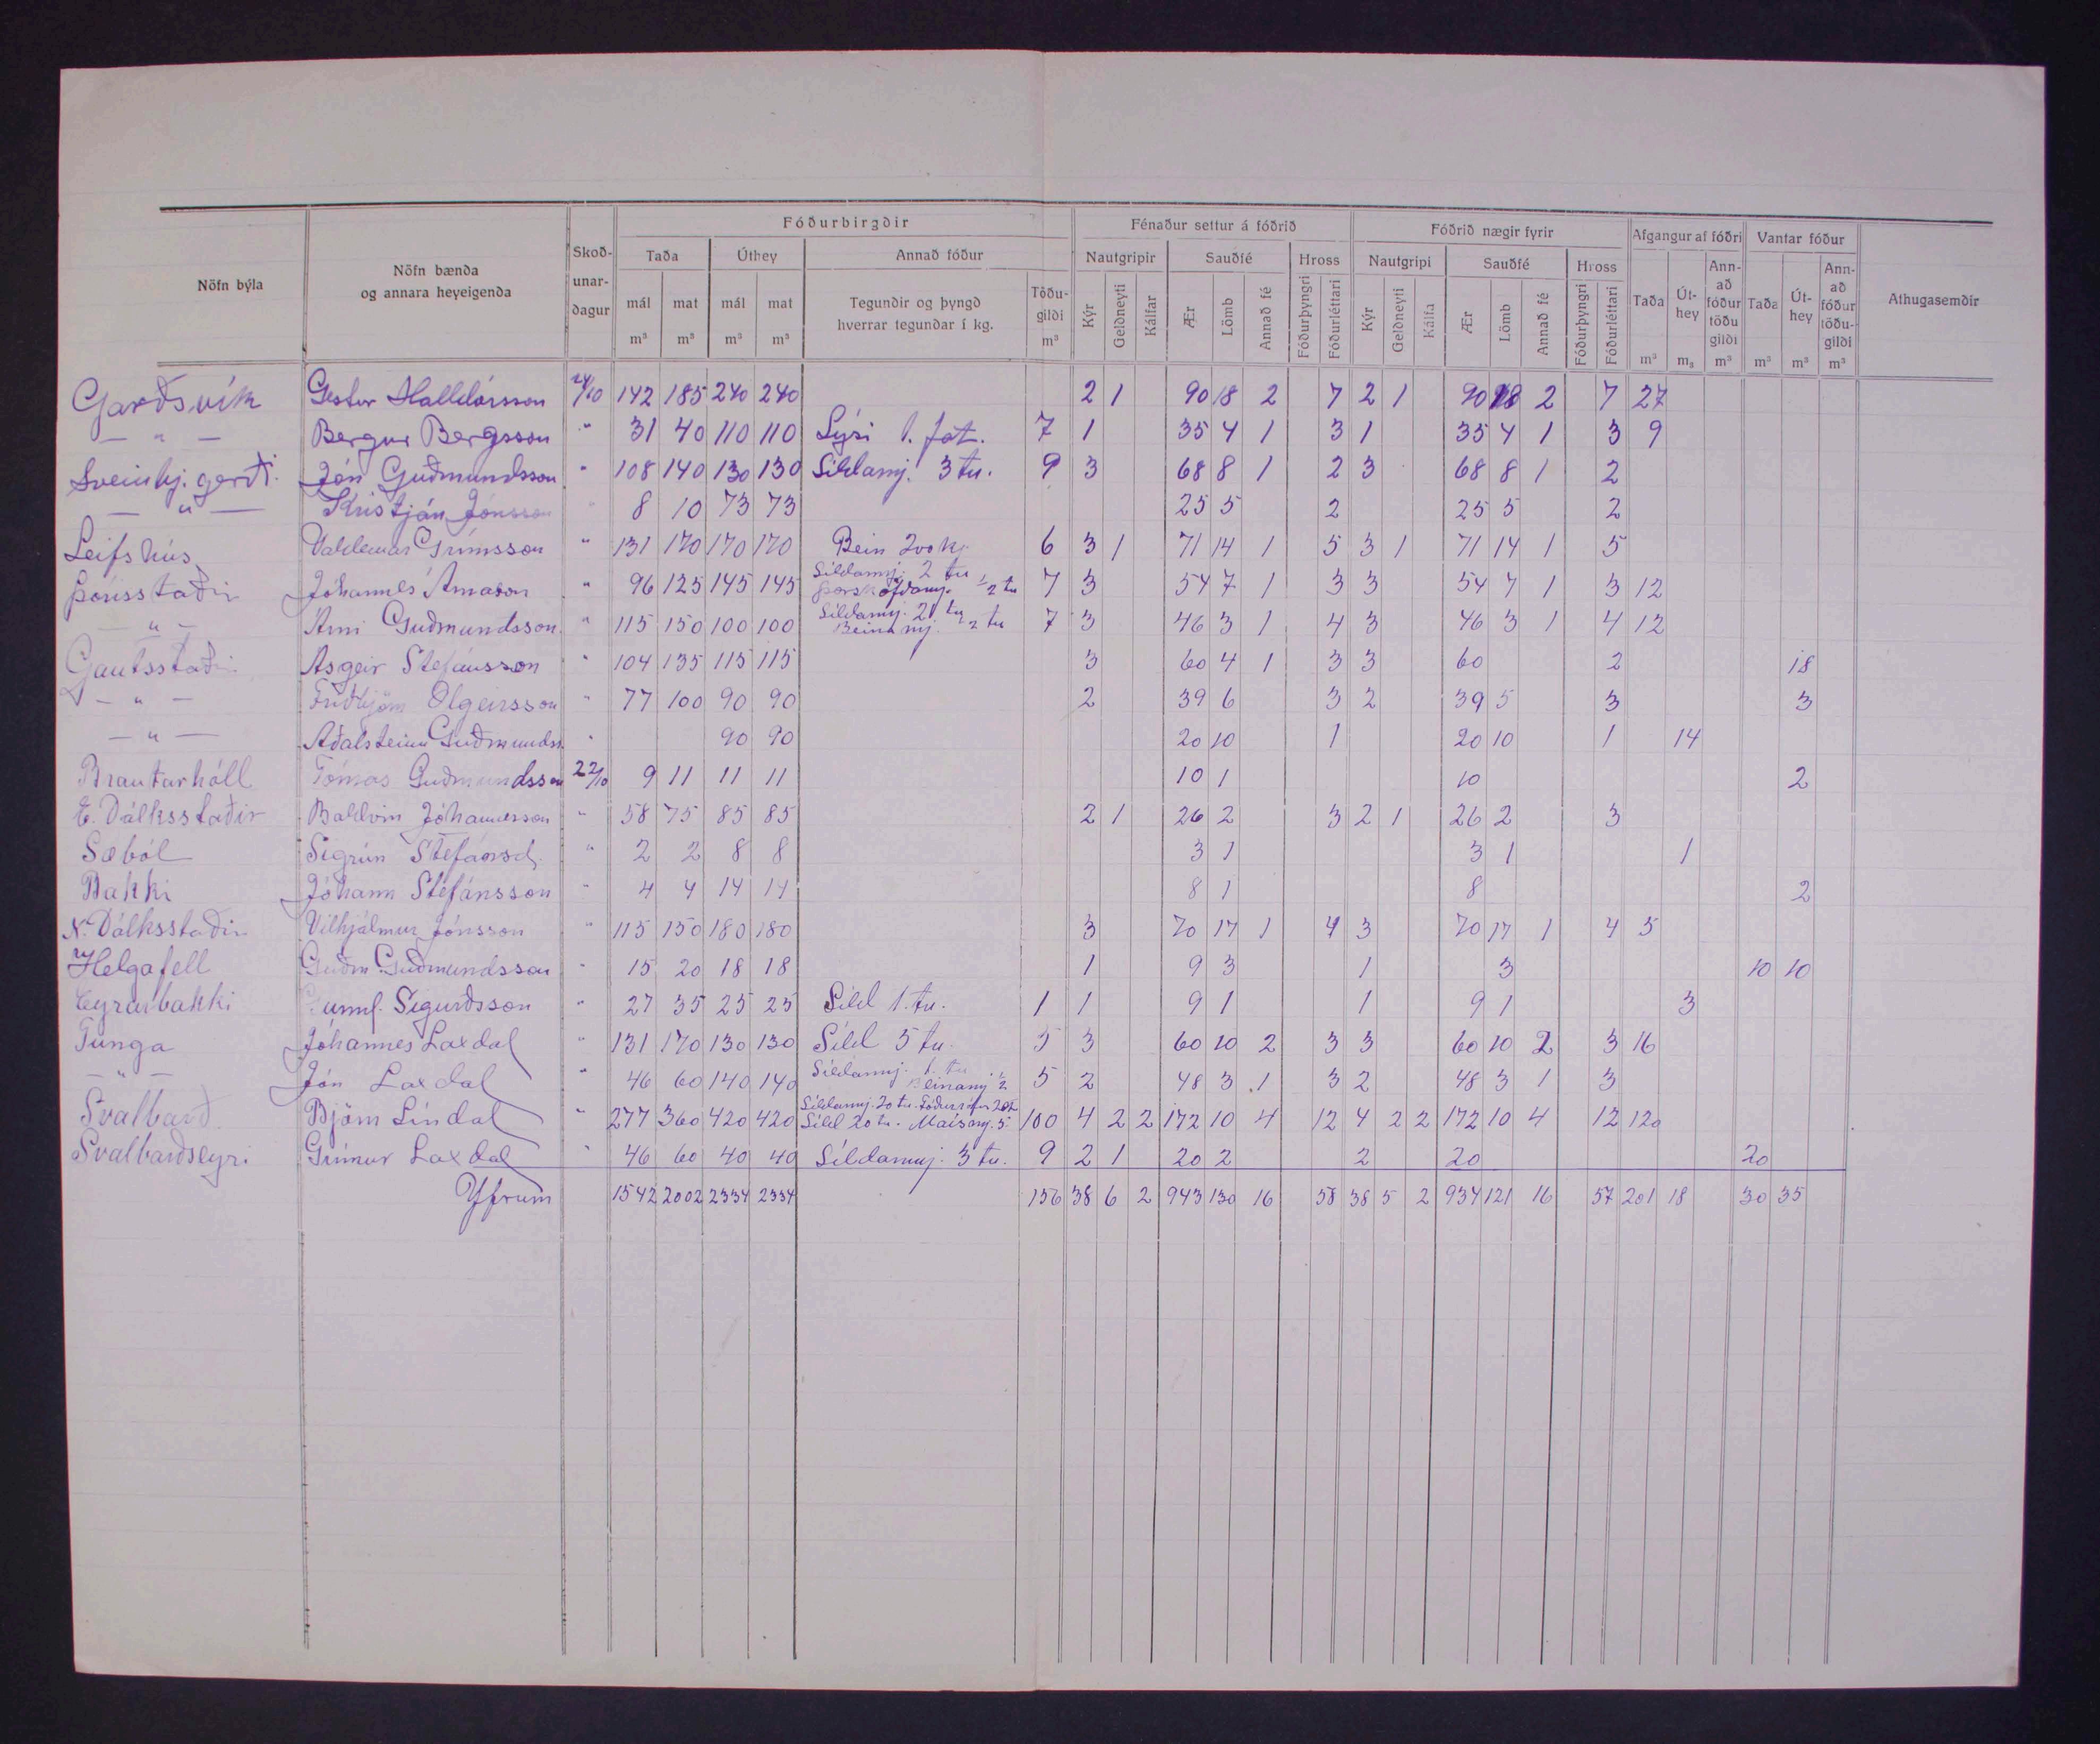 Fóðurbirgðir Fénaður settur á fóðrið Fóðrið nægir fyrir Afgangur af fóðri Vantar fóður
Nöfn býla Nöfn bænda og annara heyeigenda Skoð-unar-dagur Taða Úthey Annað fóður Nautgripir Sauðfé Hross Nautgripi Sauðfé Hross Taða Út-hey Ann-að fóður töðu gildi Taða Út-hey Ann-að fóður töðu-gildi Athugasemdir
mál mat mál mat Tegundir og þyngd hverrar tegundar í kg. Töðu-gildi Kýr Geldneyti Kálfar Ær Lömb Annað fé Fóðurþyngri Fóðurléttari Kýr Geldneyti Kálfa Ær Lömb Annað fé Fóðurþyngri Fóðurléttari
m³ m³ m³ m³ m³ m³ m₃ m³ m³ m³ m³
Garðsvík Gestur Halldórsson 24/10 142 185 240 240 2 1 90 18 2 7 2 1 90 18 2 7 27
— " — Bergur Bergsson " 31 40 110 110 Lýsi 1. fat. 7 1 35 4 1 3 1 35 4 1 3 9
Sveinbj. gerði Jón Guðmundsson " 108 140 130 130 Síldamj. 3 tu. 9 3 68 8 1 2 3 68 8 1 2
— " — Kristján Jónsson " 8 10 73 73 25 5 2 25 5 2
Leifshús Valdemar Grímsson " 131 170 170 170 Bein 200 kg 6 3 1 71 14 1 5 3 1 71 14 1 5
Þórisstaðir Jóhannes Árnason " 96 125 145 145 Síldamj. 2 tu 1/2 tu 7 3 54 7 1 3 3 54 7 1 3 12
— " — Árni Guðmundsson " 115 150 100 100 Síldamj. 2 tu Beinamj. 1/2 tu 7 3 46 3 1 4 3 46 3 1 4 12
Gautsstaðir Ásgeir Stefánsson " 104 135 115 115 3 60 4 1 3 3 60 2 18
— " — Friðbjörn Olgeirsson " 77 100 90 90 2 39 6 3 2 39 5 3 3
— " — Aðalsteinn Guðmundss. " 90 90 20 10 1 20 10 1 14
Brautarhóll Tómas Guðmundsson 22/10 9 11 11 11 10 1 10 2
E. Dálksstaðir Baldvin Jóhannesson " 58 75 85 85 2 1 26 2 3 2 1 26 2 3
Sæból Sigrún Stefánsd. " 2 2 8 8 3 1 3 1 1
Bakki Jóhann Stefánsson " 4 4 14 14 8 1 8 2
N. Dálksstaðir Vilhjálmur Jónsson " 115 150 180 180 3 70 17 1 4 3 70 17 1 4 5
Helgafell Guðm Guðmundsson " 15 20 18 18 1 9 3 1 3 10 10
Eyrarbakki Gunnl. Sigurðsson " 27 35 25 25 Síld 1. tu. 1 1 9 1 1 9 1 3
Tunga Jóhannes Laxdal " 131 170 130 130 Síld 5 tu. 5 3 60 10 2 3 3 60 10 2 3 16
— " — Jón Laxdal " 46 60 140 140 Síldamj. 1. tu Beinamj. 1/2 5 2 48 3 1 3 2 48 3 1 3
Svalbarð Björn Líndal " 277 360 420 420 Síldamj. 20 tu. Síld 20 tu. Maísmj. 5 100 4 2 2 172 10 4 12 4 2 2 172 10 4 12 120
Svalbarðseyri Grímur Laxdal " 46 60 40 40 Síldamj. 3 tu. 9 2 1 20 2 2 20 20
Yfrum 1542 2002 2334 2334 156 38 6 2 943 130 16 58 38 5 2 934 121 16 57 201 18 30 35